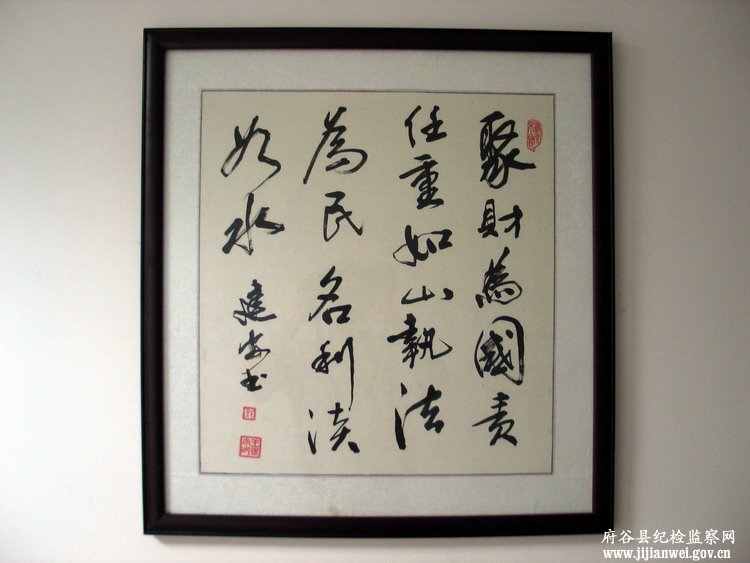 聚財為國责
任重如山執法
為民名利淡
如水
建安书
府谷县纪检监察网
www.jijianwei.gov.cn